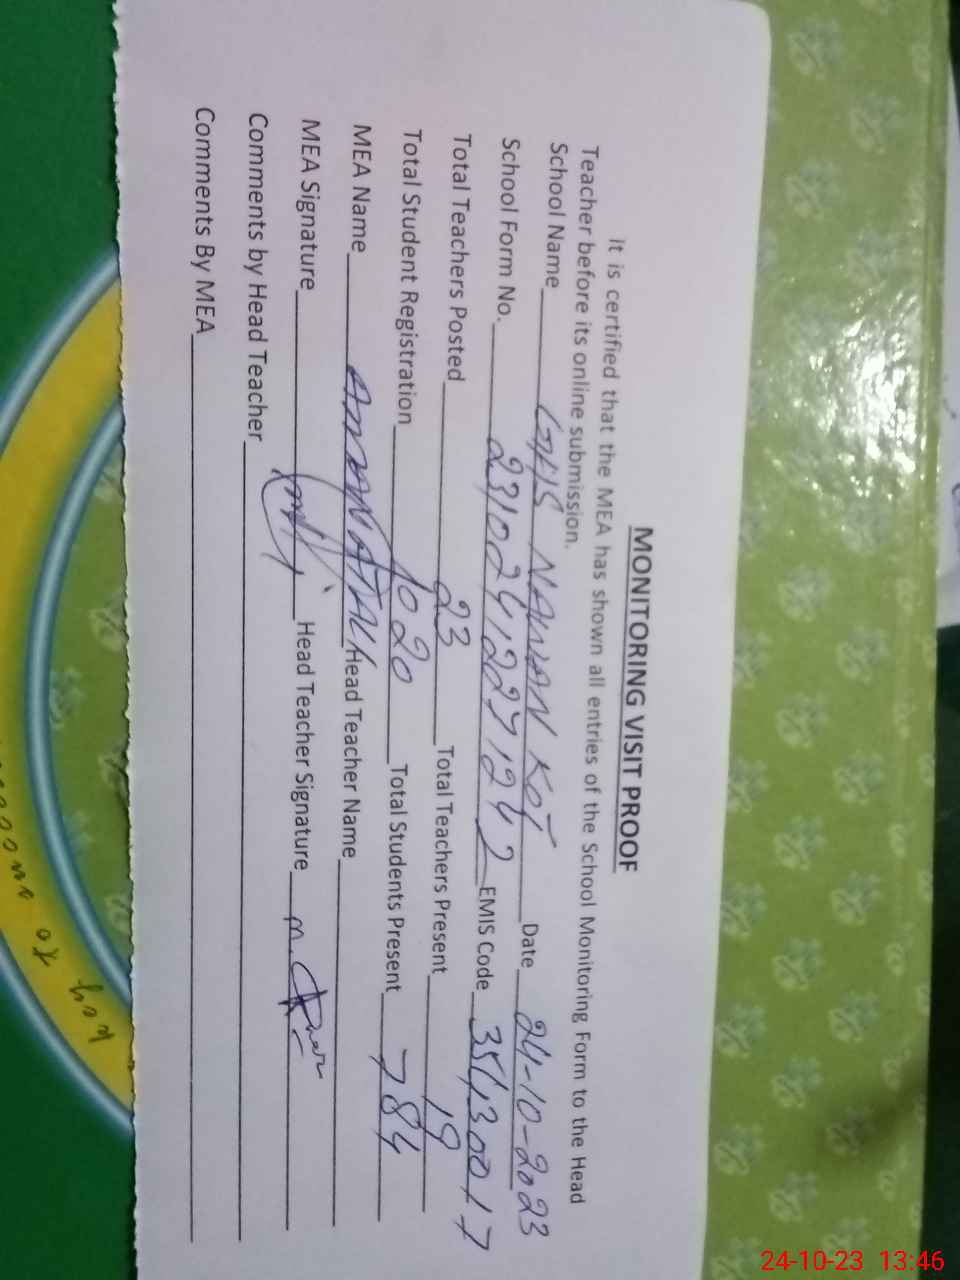 MONITORING VISIT PROOF
It is certified that the MEA has shown all entries of the School Monitoring Form to the Head
Teacher before its online submission.
School Name GHS NAWAN KOT Date 24-10-2023
School Form No. EMIS Code 35130017
Total Teachers Posted 23 Total Teachers Present 19
Total Student Registration 1020 Total Students Present 784
MEA Name Head Teacher Name
MEA Signature Head Teacher Signature
Comments by Head Teacher
Comments By MEA
24-10-23 13:46